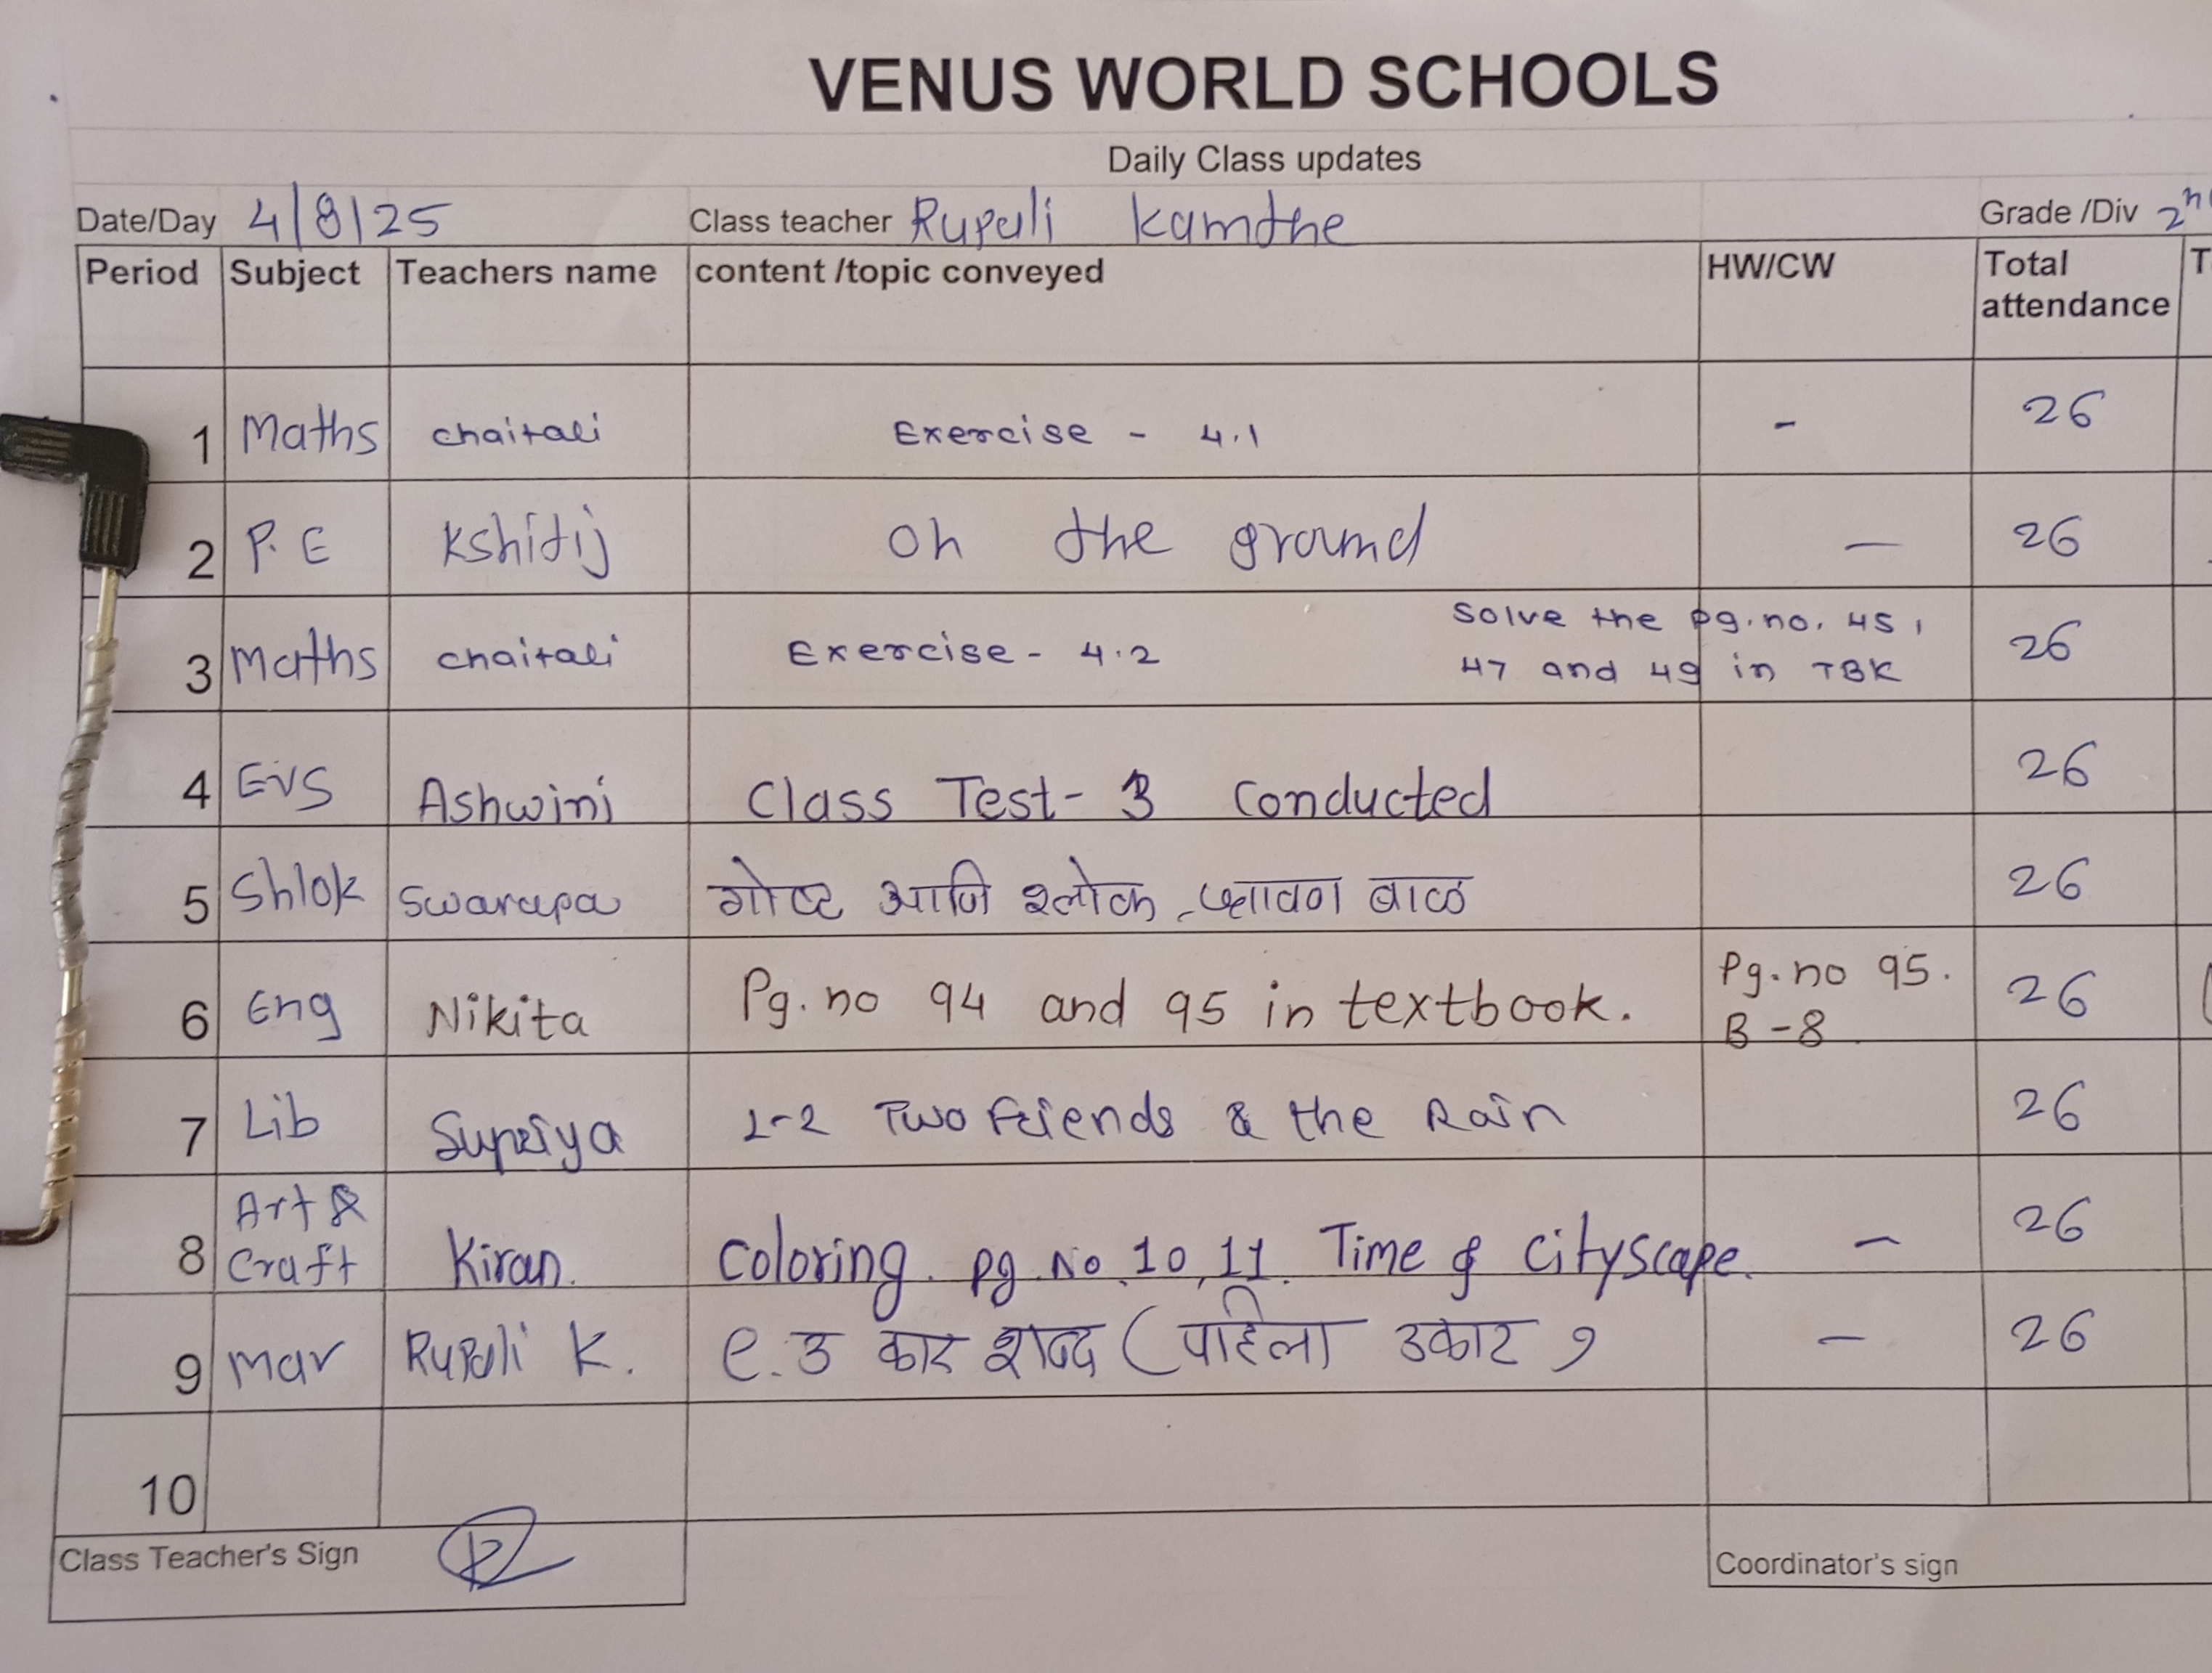 VENUS WORLD SCHOOLS
Daily Class updates
Date/Day 4/8/25 Class teacher Rupali Kamthe Grade /Div 2
Period Subject Teachers name content /topic conveyed HW/CW Total attendance
1 Maths chaitali Exercise - 4.1 - 26
2 P.E Kshitij on the ground — 26
3 Maths chaitali Exercise - 4.2 Solve the pg.no. 45, 26
47 and 49 in TBK
4 EVS Ashwini Class Test- 3 Conducted 26
5 Shlok Swarupa गोष्ट आणि श्लोक - श्रावण बाळ 26
6 Eng Nikita Pg. no 94 and 95 in textbook. Pg. no 95. 26
B -8
7 Lib Supriya L-2 Two Friends & the Rain 26
8 Art & Craft Kiran. Coloring. pg. No. 10, 11. Time & Cityscape. — 26
9 Mar Rupali K. ९. उ कार शब्द (पहिला उकार) — 26
10
Class Teacher's Sign
Coordinator's sign